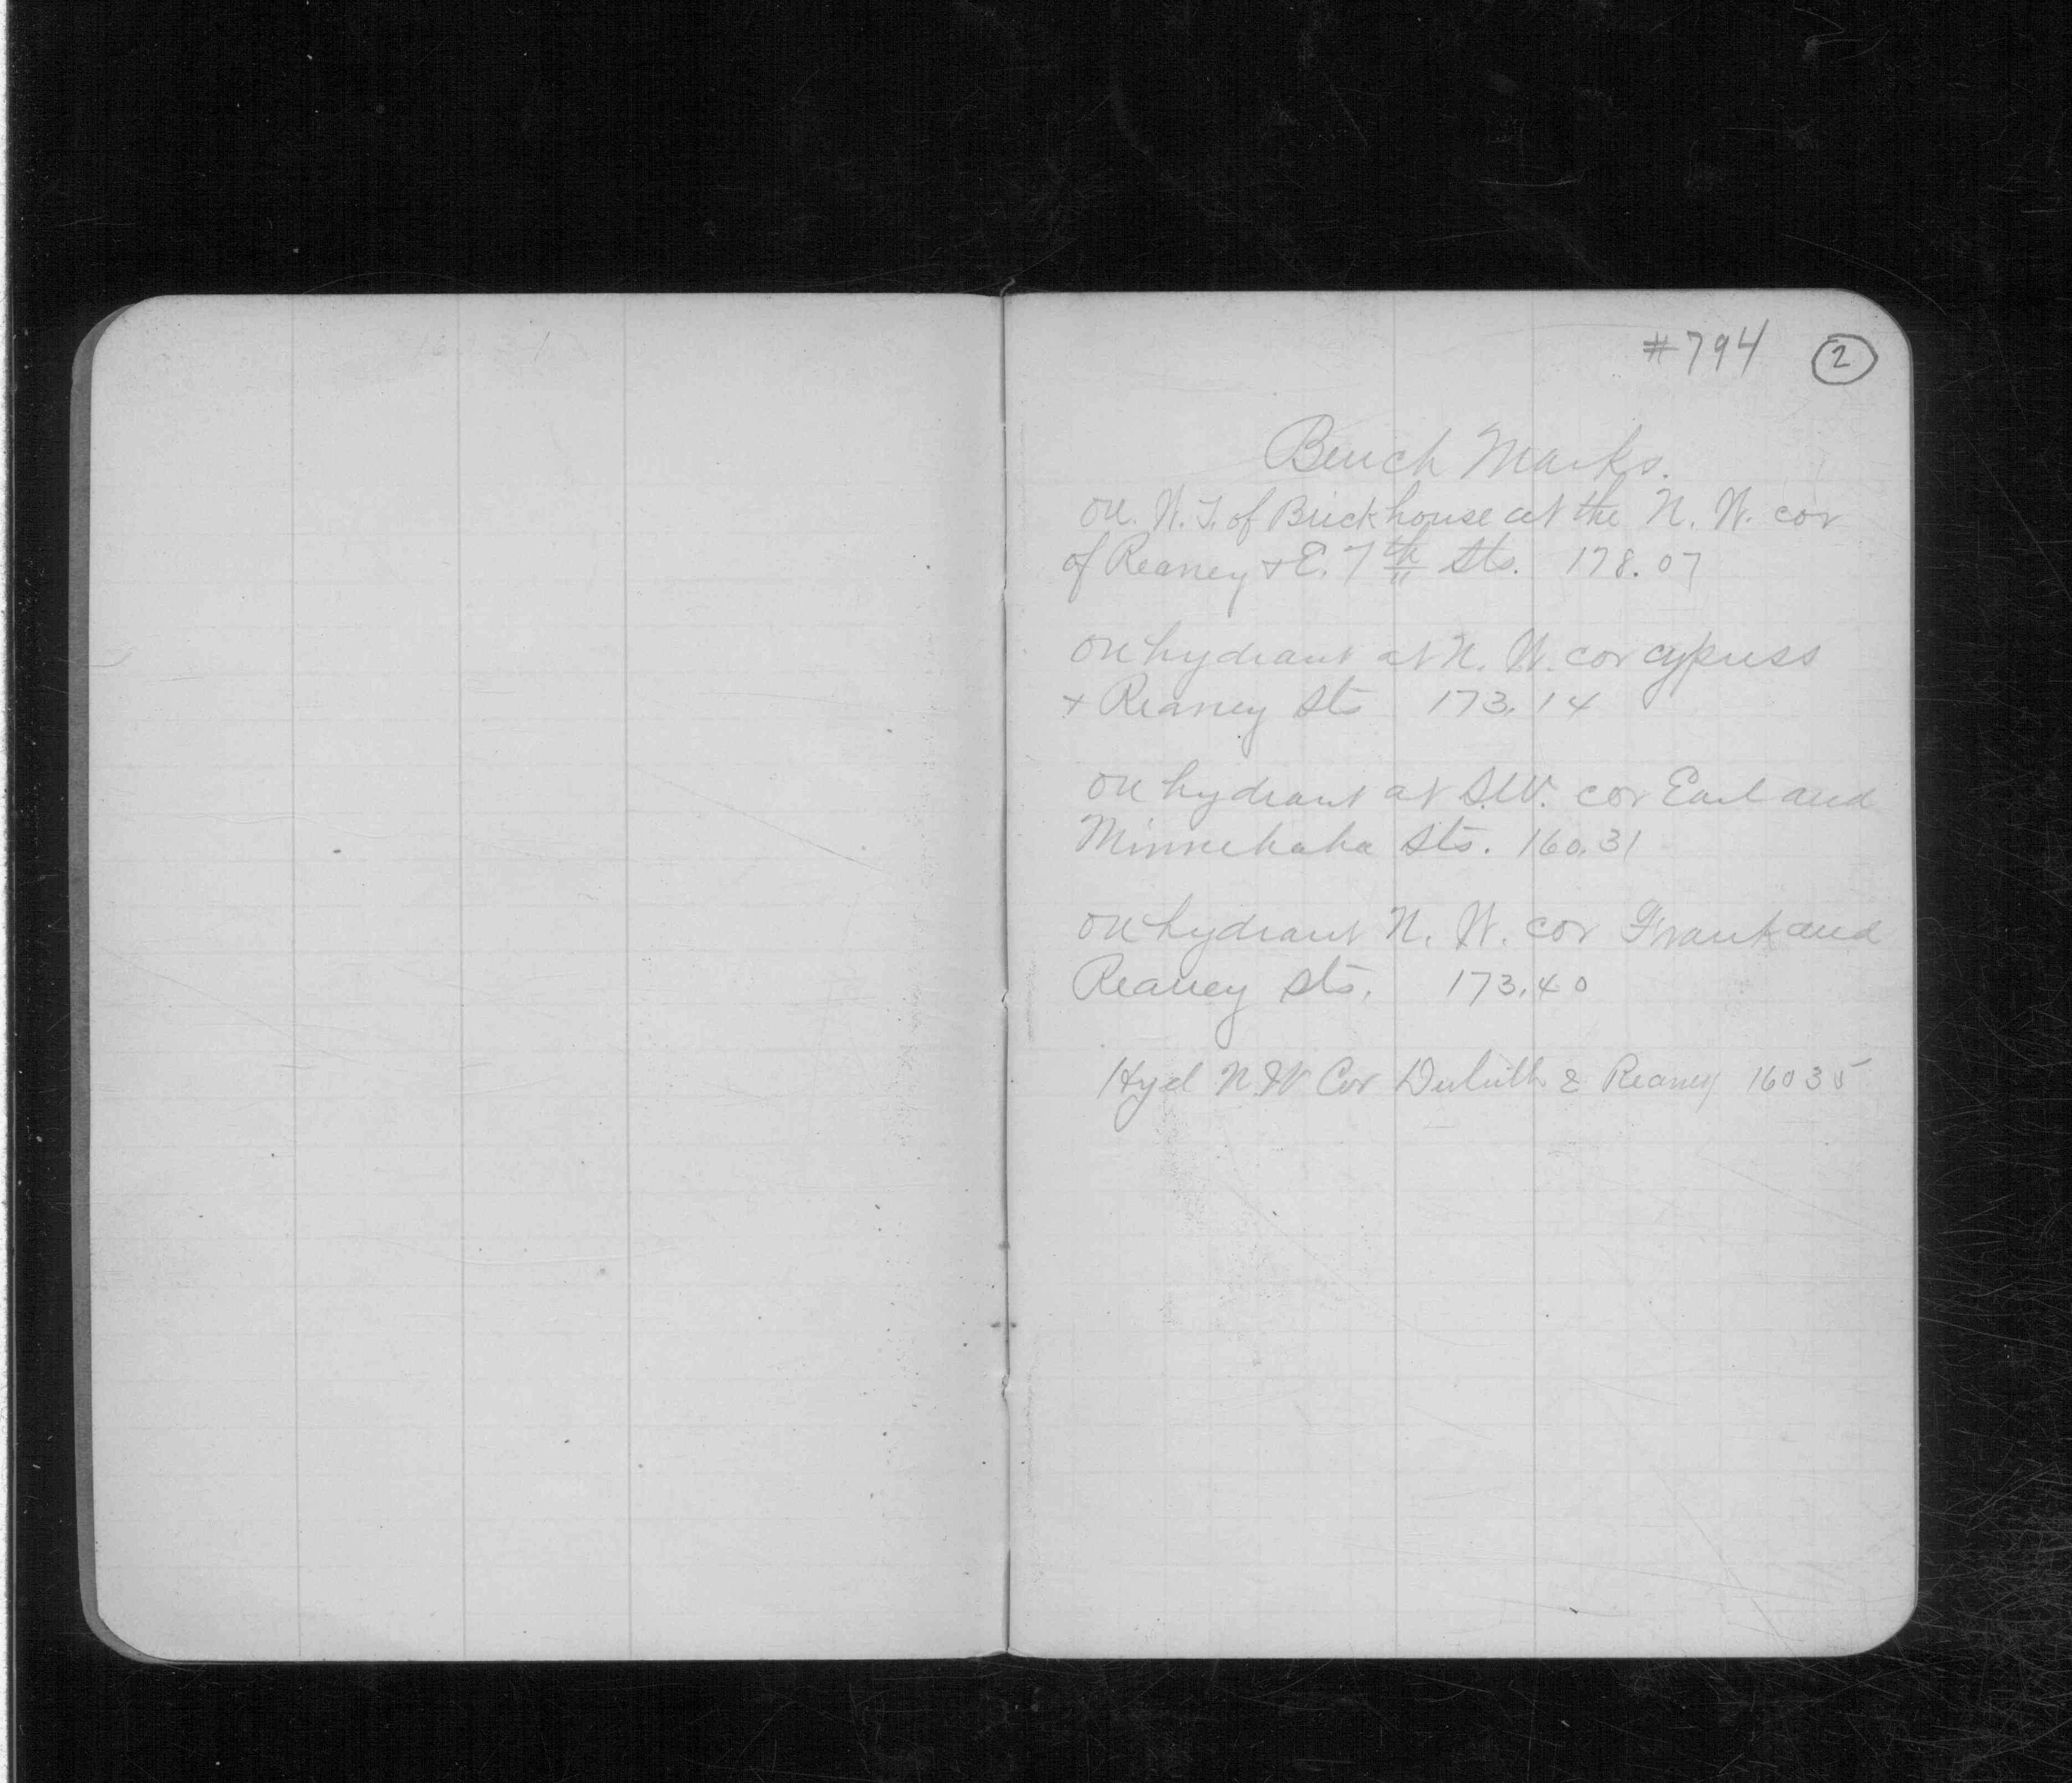 #794 2
Bench Marks.
on. W. T. of Brick house at the N. W. cor
of Reaney & E. 7th Sts. 178.07
on hydrant at N. W. cor cypress
& Reaney Sts 173.14
on hydrant at S.W. cor Earl and
Minnehaha Sts. 160.31
on hydrant N. W. cor Frank and
Reaney Sts. 173.40
Hyd N.W Cor Duluth & Reaney 160 35